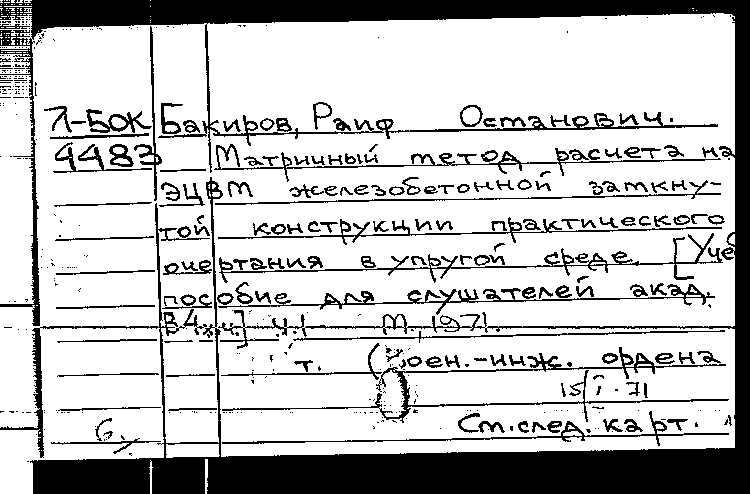 Л-БОК Бакиров, Раиф Останович.
4483 Матричный метод расчета на
ЭЦВМ железобетонной замкну-
той конструкции практического
очертания в упругой среде. [Учеб
пособие для слушателей акад.
В 4-х ч.] Ч.1 М., 1971.
т. (Воен.-инж. ордена
15/I.71
См. след. карт.